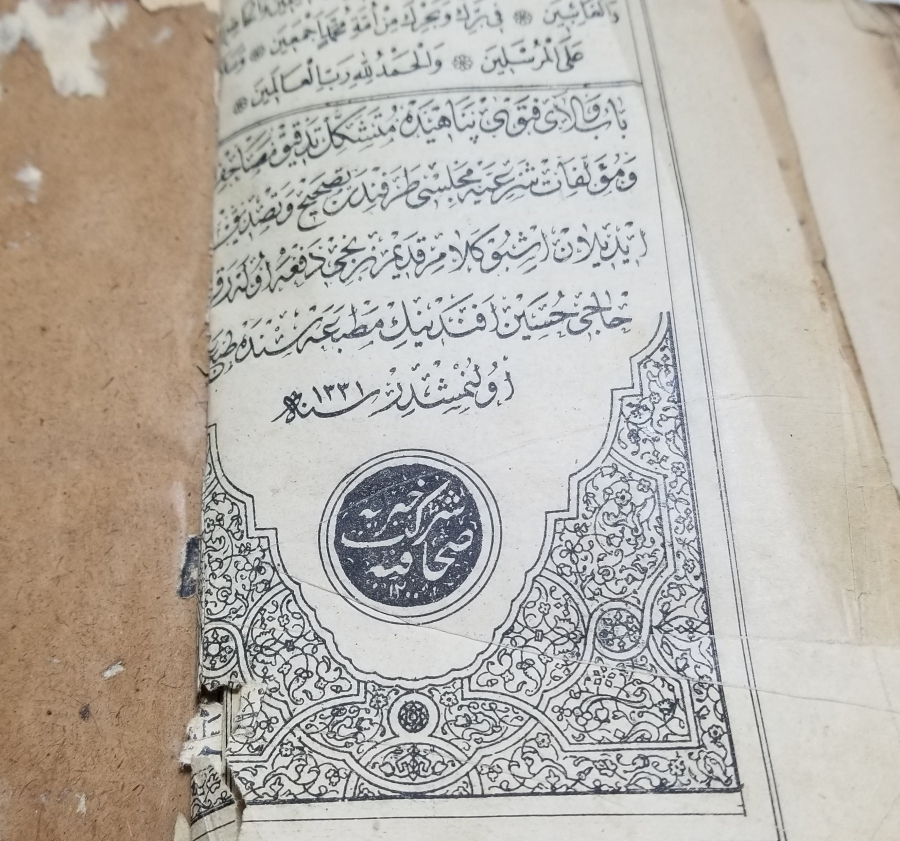 والغائبين ۞ في برك وبحرك من أمة محمد أجمعين ۞
على المرسلين ۞ والحمد لله رب العالمين ۞
باب والاى فتوى پناهيده متشكل تدقيق مصاحف
ومؤلفات شرعيه مجلسى طرفيندن تصحيح وتصديق
ايديلان اشبو كلام قديم برنجى دفعه اوله رق
حاجى حسين افندينك مطبعه سنده طبع
اولنمشدر سنه ١٣٣١
شركت خيريه
صحافيه